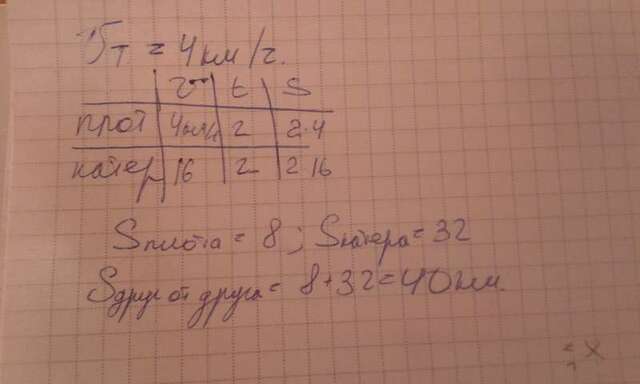 Vт = 4 км/ч.
V t S
плот 4км/ч 2 2·4
катер 16 2 2 16
Sплота = 8 ; Sкатера = 32
Sдруг от друга = 8+32=40км.